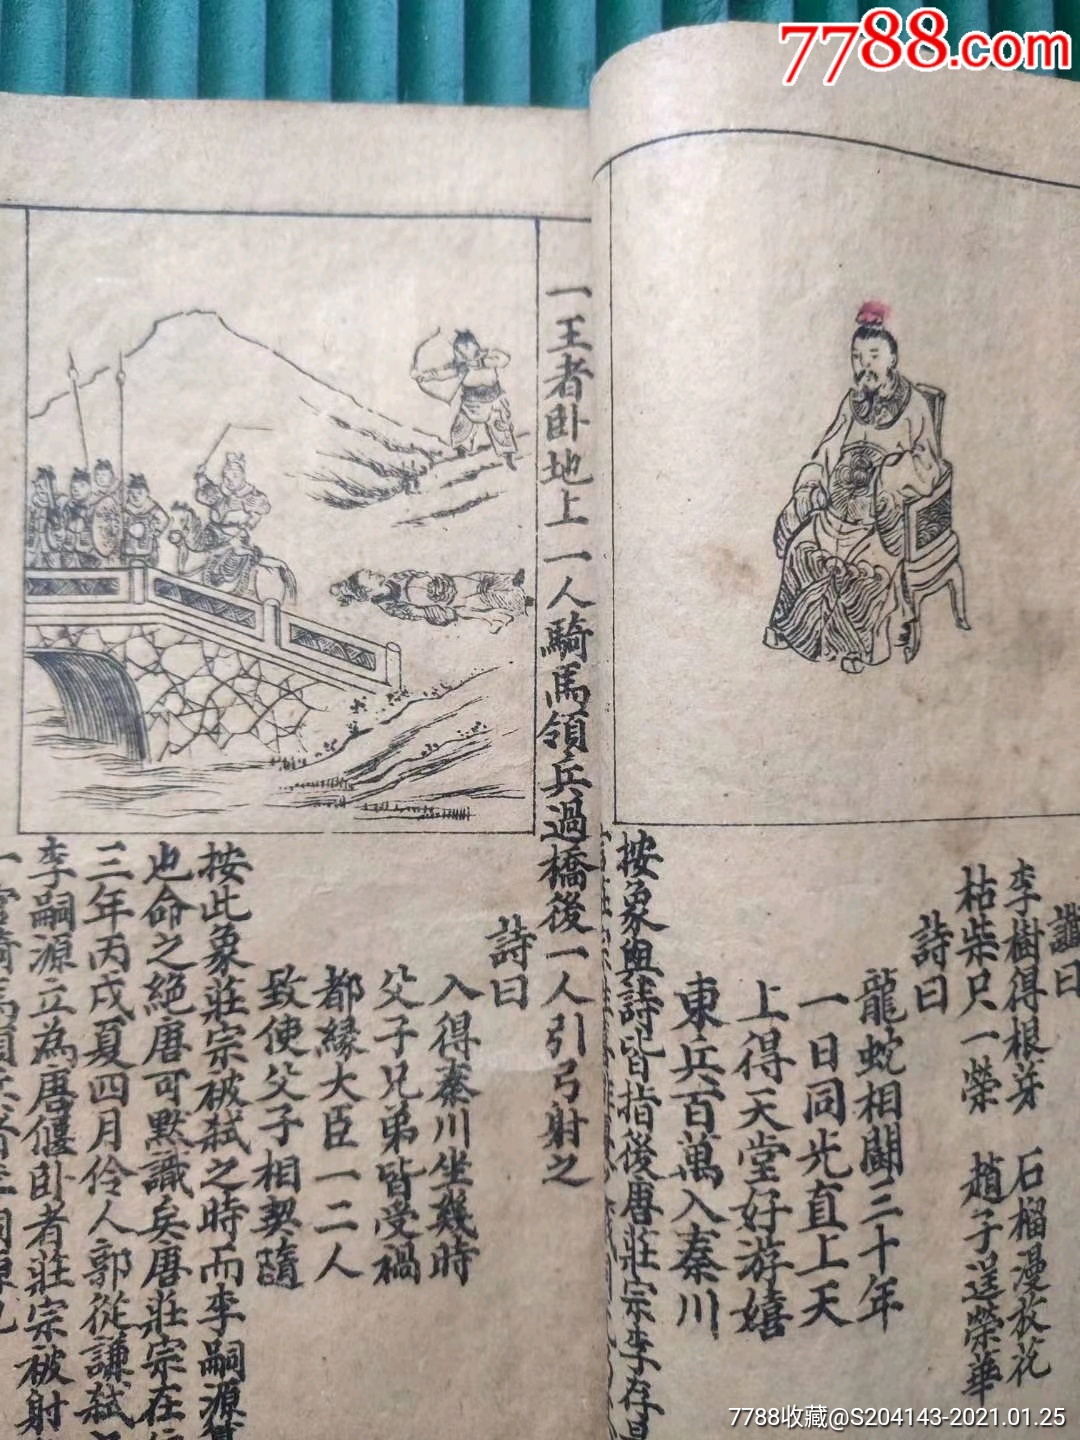 7788.com
讖曰
李樹得根芽 石榴漫放花
枯柴只一榮 趙子送榮華
詩曰
龍蛇相鬭三十年
一日同光直上天
上得天堂好游嬉
東兵百萬入秦川
按象與詩皆指後唐莊宗李存
一王者卧地上一人騎馬領兵過橋後一人引弓射之
詩曰
入得秦川坐幾時
父子兄弟皆受禍
都緣大臣一二人
致使父子相契隨
按此象莊宗被弒之時而李嗣源
也命之絕唐可默識矣唐莊宗在
三年丙戌夏四月伶人郭從謙弒
李嗣源立為唐偃卧者莊宗被射
7788收藏@S204143-2021.01.25